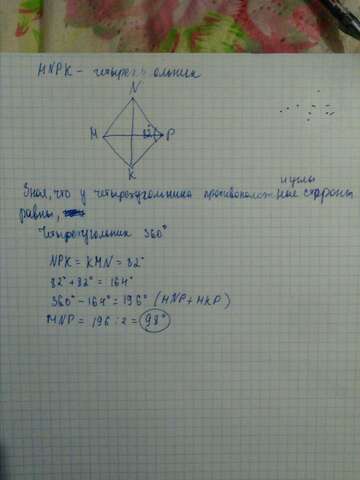 MNPK - четырехугольник
N
M
82°
P
K
и углы
Зная, что у четырехугольника противоположные стороны
равны,
Четырехугольник 360°
NPK = KMN = 82°
82° + 82° = 164°
360° - 164° = 196° (MNP + MKP)
MNP = 196 : 2 = 98°